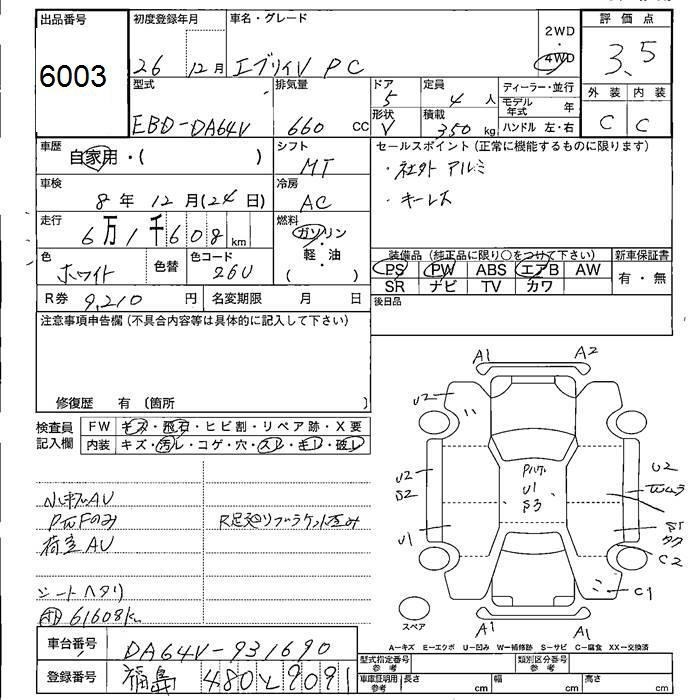 出品番号
6003
初度登録年月
26年12月
車名・グレード
エブリイV PC
2WD
・
4WD
評価点
3.5
外装 内装
C C
型式
EBD-DA64V
排気量
660 CC
ドア
5
形状
V
定員
4 人
積載
350 kg
ディーラー・並行
モデル年式 年
ハンドル 左・右
車歴
自家用・( )
シフト
MT
セールスポイント(正常に機能するものに限ります)
・社外アルミ
・キーレス
車検
8年12月(24日)
冷房
AC
走行
6万1千608km
燃料
ガソリン
・
軽・油
( )
色
ホワイト
色替
色コード
26U
装備品(純正品に限り○をつけて下さい)
PS PW ABS エアB AW
SR ナビ TV カワ
新車保証書
有・無
R券 9,210 円
名変期限 月 日
後日品
注意事項申告欄(不具合内容等は具体的に記入して下さい)
修復歴 有 〔箇所 〕
検査員記入欄
FW キズ・飛石・ヒビ割・リペア跡・X要
内装 キズ・汚レ・コゲ・穴・スレ・キレ・破レ
荷室AU
シートヘタリ
61608km
A1 A2
U2
U2
S2
U1
U1
S3
U2
S1
C2
C1
A1 A1
スペア
A-キズ E-エクボ U-凹み W-補修跡 S-サビ C-腐食 XX-交換済
車台番号
DA64V-931690
登録番号
福島 480 と 9091
型式指定番号 参考
類別区分番号 参考
車庫証明用 参考
長さ cm
幅 cm
高さ cm